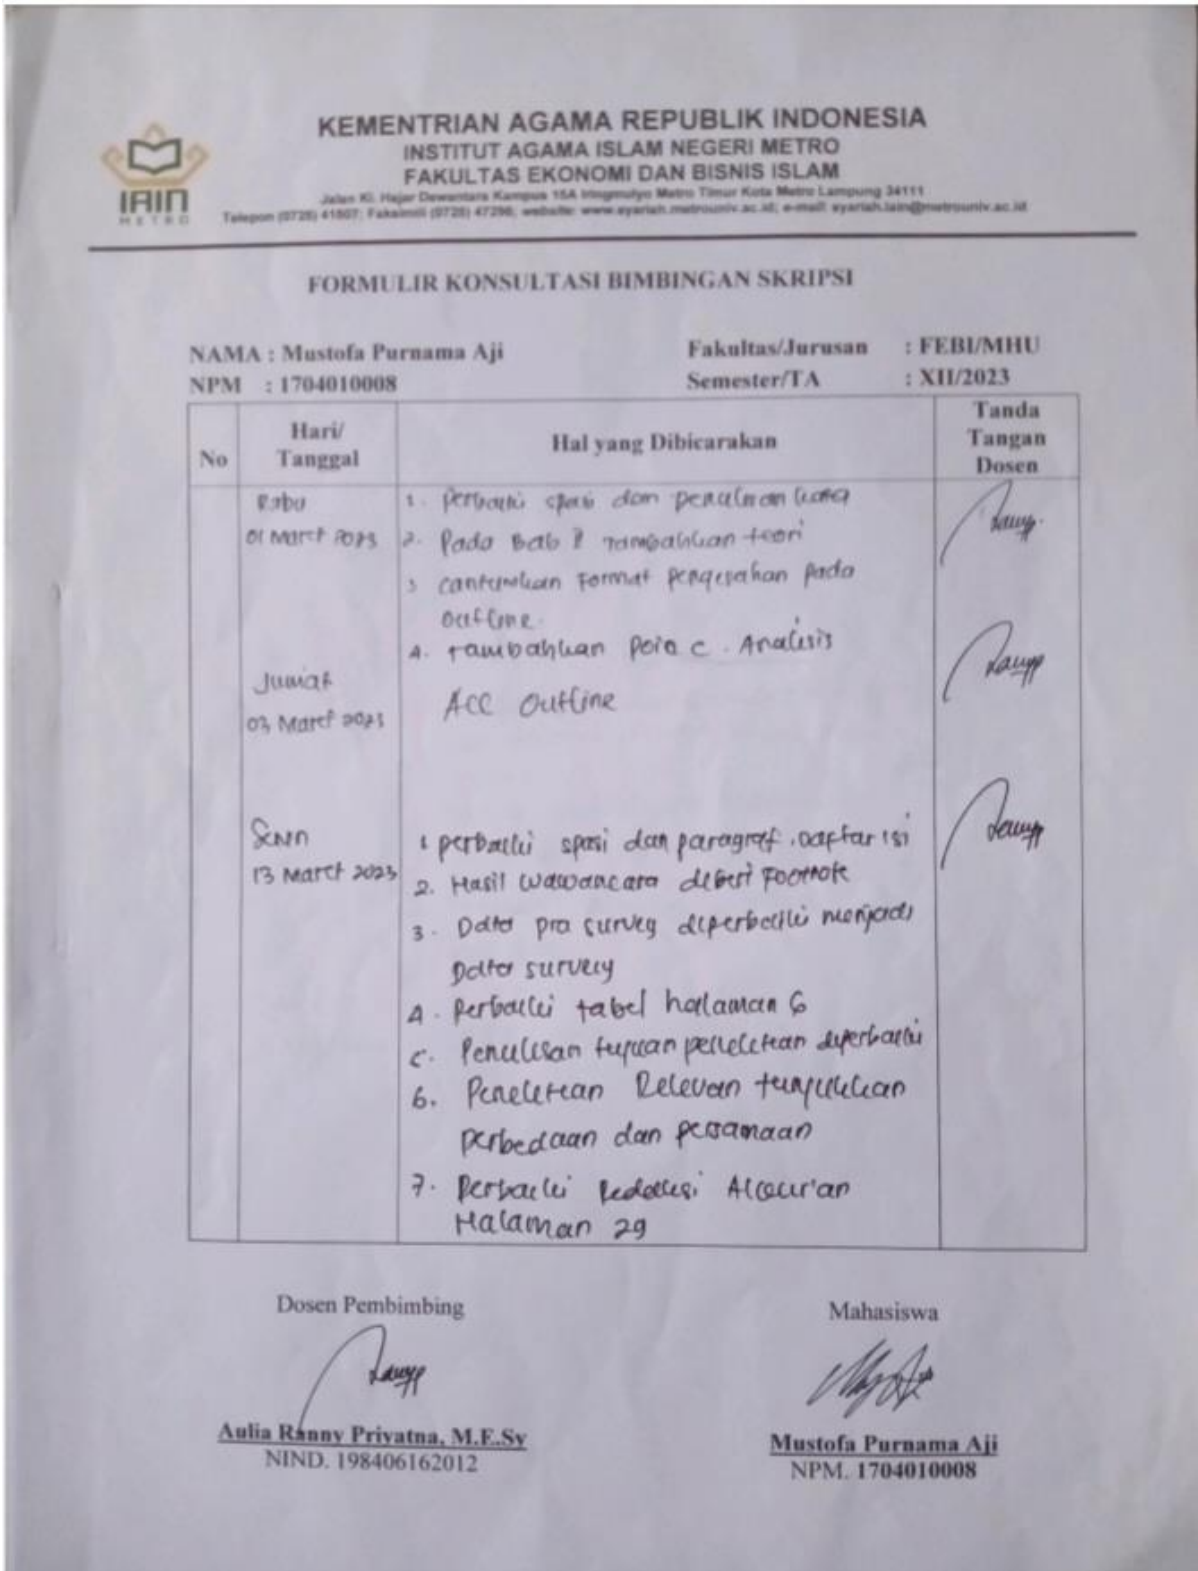 KEMENTRIAN AGAMA REPUBLIK INDONESIA
INSTITUT AGAMA ISLAM NEGERI METRO
FAKULTAS EKONOMI DAN BISNIS ISLAM
Jalan Ki. Hajar Dewantara Kampus 15A Iringmulyo Metro Timur Kota Metro Lampung 34111
Telepon (0725) 41507; Faksimili (0725) 47296; website: www.syariah.metrouniv.ac.id; e-mail: syariah.iain@metrouniv.ac.id
IAIN
METRO
FORMULIR KONSULTASI BIMBINGAN SKRIPSI
NAMA : Mustofa Purnama Aji Fakultas/Jurusan : FEBI/MHU
NPM : 1704010008 Semester/TA : XII/2023
No Hari/ Tanggal Hal yang Dibicarakan Tanda Tangan Dosen
Rabu 1. Perbaiki spasi dan penulisan
01 Maret 2023 2. Pada Bab tambahkan teori
3 cantumkan Format pengesahan pada
outline.
4. tambahkan poin c. Analisis
Jumat
03 Maret 2023 ACC Outline
Senin 1 perbaiki spasi dan paragraf. Daftar isi
13 Maret 2023 2. Hasil wawancara diberi Footnote
3. Data pra survey diperbaiki menjadi
Data survey
4. Perbaiki tabel halaman 6
5. Penulisan tujuan penelitian diperbaiki
6. Penelitian Relevan tunjukkan
perbedaan dan persamaan
7. Perbaiki Redaksi Alqur'an
Halaman 29
Dosen Pembimbing Mahasiswa
Aulia Ranny Priyatna, M.E.Sy Mustofa Purnama Aji
NIND. 198406162012 NPM. 1704010008